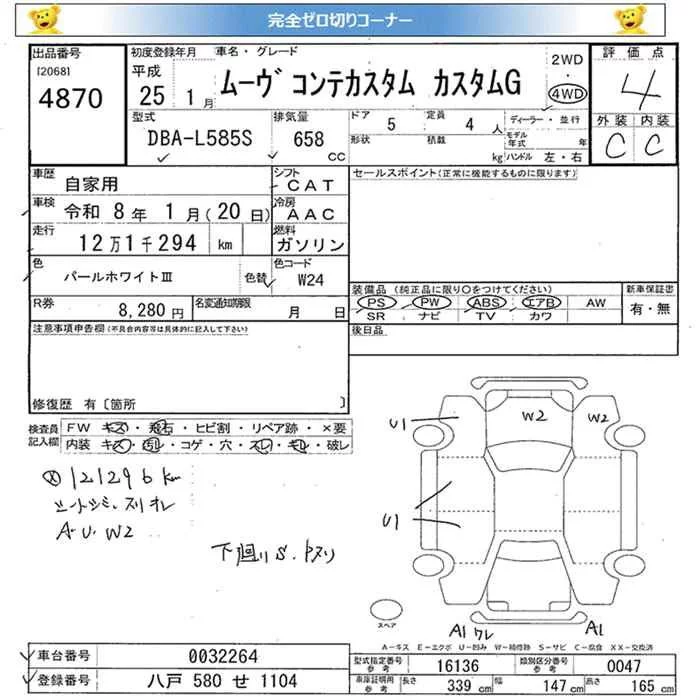 完全ゼロ切りコーナー
出品番号
[2068]
4870
初度登録年月
平成
25 1月
車名・グレード
ムーヴ コンテカスタム カスタムG
2WD
・
4WD
評価点
4
外装 内装
C C
型式
DBA-L585S
排気量
658
cc
ドア 5
定員 4人
形状
積載
kg
ディーラー・並行
モデル年式 年
ハンドル 左・右
車歴
自家用
シフト
CAT
車検
令和 8年 1月(20日)
冷房
AAC
走行
12万1千294 km
燃料
ガソリン
色
パールホワイトⅢ
色替
色コード
W24
R券
8,280円
名変通知期限
月 日
セールスポイント(正常に機能するものに限ります)
装備品 (純正品に限り○をつけてください)
PS ・ PW ・ ABS ・ エアB ・ AW
SR ナビ TV カワ
新車保証書
有・無
後日品
注意事項申告欄(不具合内容等は具体的に記入して下さい)
修復歴 有〔箇所 〕
検査員記入欄
FW キズ・飛石・ヒビ割・リペア跡・×要
内装 キズ・汚れ・コゲ・穴・スレ・キレ・破レ
121296km
シートシミ、スリ
A・U・W2
下廻りS.
U1
W2
W2
U1
スペア
A1 ワレ
A1
A-キズ E-エクボ U-凹み W-補修跡 S-サビ C-腐食 XX-交換済
車台番号
0032264
登録番号
八戸 580 せ 1104
型式指定番号
参考
16136
類別区分番号
参考
0047
車庫証明用
参考
長さ 339 cm
幅 147 cm
高さ 165 cm